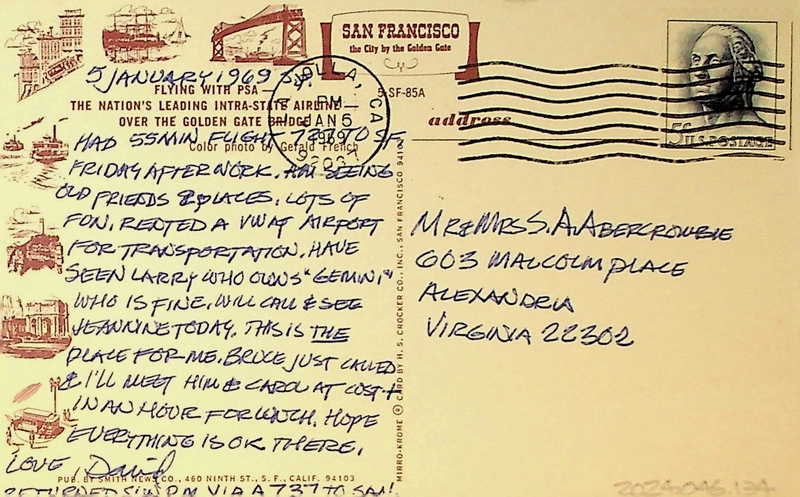 SAN FRANCISCO
the City by the Golden Gate
5 JANUARY 1969
FLYING WITH PSA —
THE NATION'S LEADING INTRA-STATE AIRLINE
OVER THE GOLDEN GATE BRIDGE
Color photo by Gerald French
5-SF-85A
LA JOLLA, CA
PM
JAN 5
1969
address
5¢ U.S. POSTAGE
HAD 55 MIN FLIGHT 727 TO SF
FRIDAY AFTER WORK. AM SEEING
OLD FRIENDS & PLACES. LOTS OF
FUN. RENTED A VW AT AIRPORT
FOR TRANSPORTATION. HAVE
SEEN LARRY WHO OWNS "GEMINI"
WHO IS FINE. WILL CALL & SEE
JEANNINE TODAY. THIS IS THE
PLACE FOR ME. BRUCE JUST CALLED
& I'LL MEET HIM & CAROL AT
IN AN HOUR FOR LUNCH. HOPE
EVERYTHING IS OK THERE.
LOVE, David
PUB. BY SMITH NEWS CO., 460 NINTH ST., S. F., CALIF. 94103
RETURNED SUN PM VIA A 737 TO SAN!
MIRRO-KROME ® CARD BY H. S. CROCKER CO., INC., SAN FRANCISCO
MR & MRS S. A. ABERCROMBIE
603 MALCOLM PLACE
ALEXANDRIA
VIRGINIA 22302